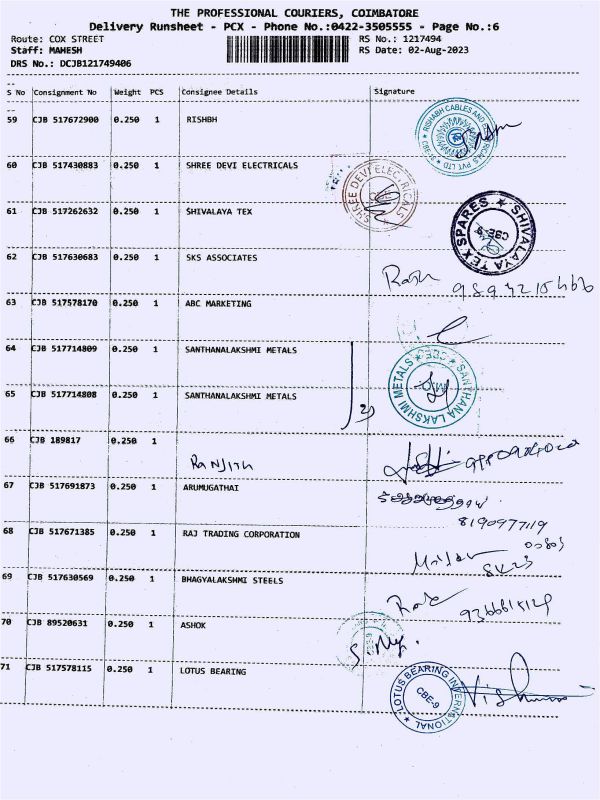 THE PROFESSIONAL COURIERS, COIMBATORE
Delivery Runsheet - PCX - Phone No.:0422-3505555 - Page No.:6
Route: COX STREET
RS No.: 1217494
Staff: MAHESH
RS Date: 02-Aug-2023
DRS No.: DCJB121749406
S No Consignment No Weight PCS Consignee Details Signature
59 CJB 517672900 0.250 1 RISHBH
RISHABH CABLES AND ELECTRICALS PVT LTD CBE-9
60 CJB 517430883 0.250 1 SHREE DEVI ELECTRICALS
SHREE DEVI ELECTRICALS
61 CJB 517262632 0.250 1 SHIVALAYA TEX
SHIVALAYA TEX SPARES CBE-9
62 CJB 517630683 0.250 1 SKS ASSOCIATES
63 CJB 517578170 0.250 1 ABC MARKETING
64 CJB 517714809 0.250 1 SANTHANALAKSHMI METALS
SANTHANA LAKSHMI METALS
65 CJB 517714808 0.250 1 SANTHANALAKSHMI METALS
66 CJB 189817 0.250 1
RANJITH
67 CJB 517691873 0.250 1 ARUMUGATHAI
8190977119
68 CJB 517671385 0.250 1 RAJ TRADING CORPORATION
69 CJB 517630569 0.250 1 BHAGYALAKSHMI STEELS
70 CJB 89520631 0.250 1 ASHOK
71 CJB 517578115 0.250 1 LOTUS BEARING
LOTUS BEARING INTERNATIONAL CBE-9